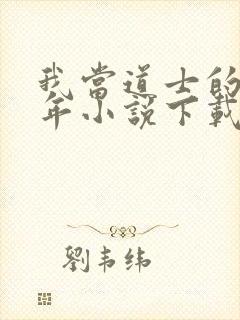 我當道士的
年小說下載
劉韦纬